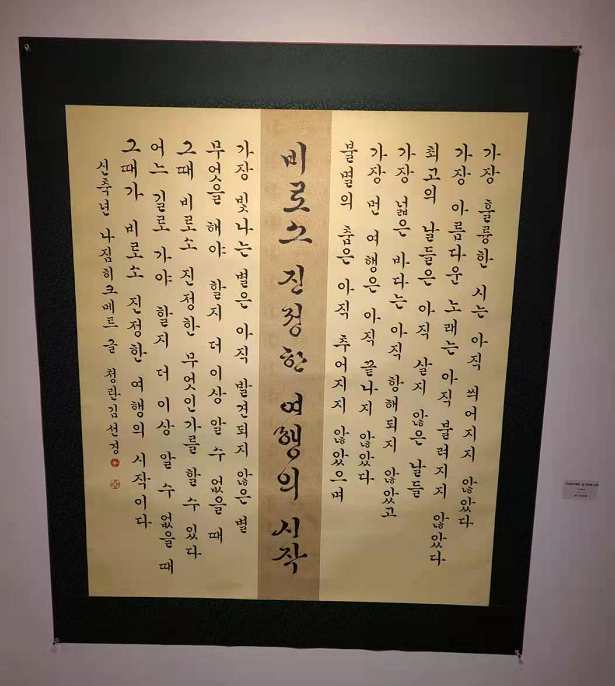 가장 훌륭한 시는 아직 씌어지지 않았다
가장 아름다운 노래는 아직 불려지지 않았다
최고의 날들은 아직 살지 않은 날들
가장 넓은 바다는 아직 항해되지 않았고
가장 먼 여행은 아직 끝나지 않았다
불멸의 춤은 아직 추어지지 않았으며
비로소 진정한 여행의 시작
가장 빛나는 별은 아직 발견되지 않은 별
무엇을 해야 할지 더이상 알 수 없을 때
그때 비로소 진정한 무엇인가를 할 수 있다
어느 길로 가야 할지 더 이상 알 수 없을 때
그때가 비로소 진정한 여행의 시작이다
신축년 나짐히크메트 글 청란 김선경